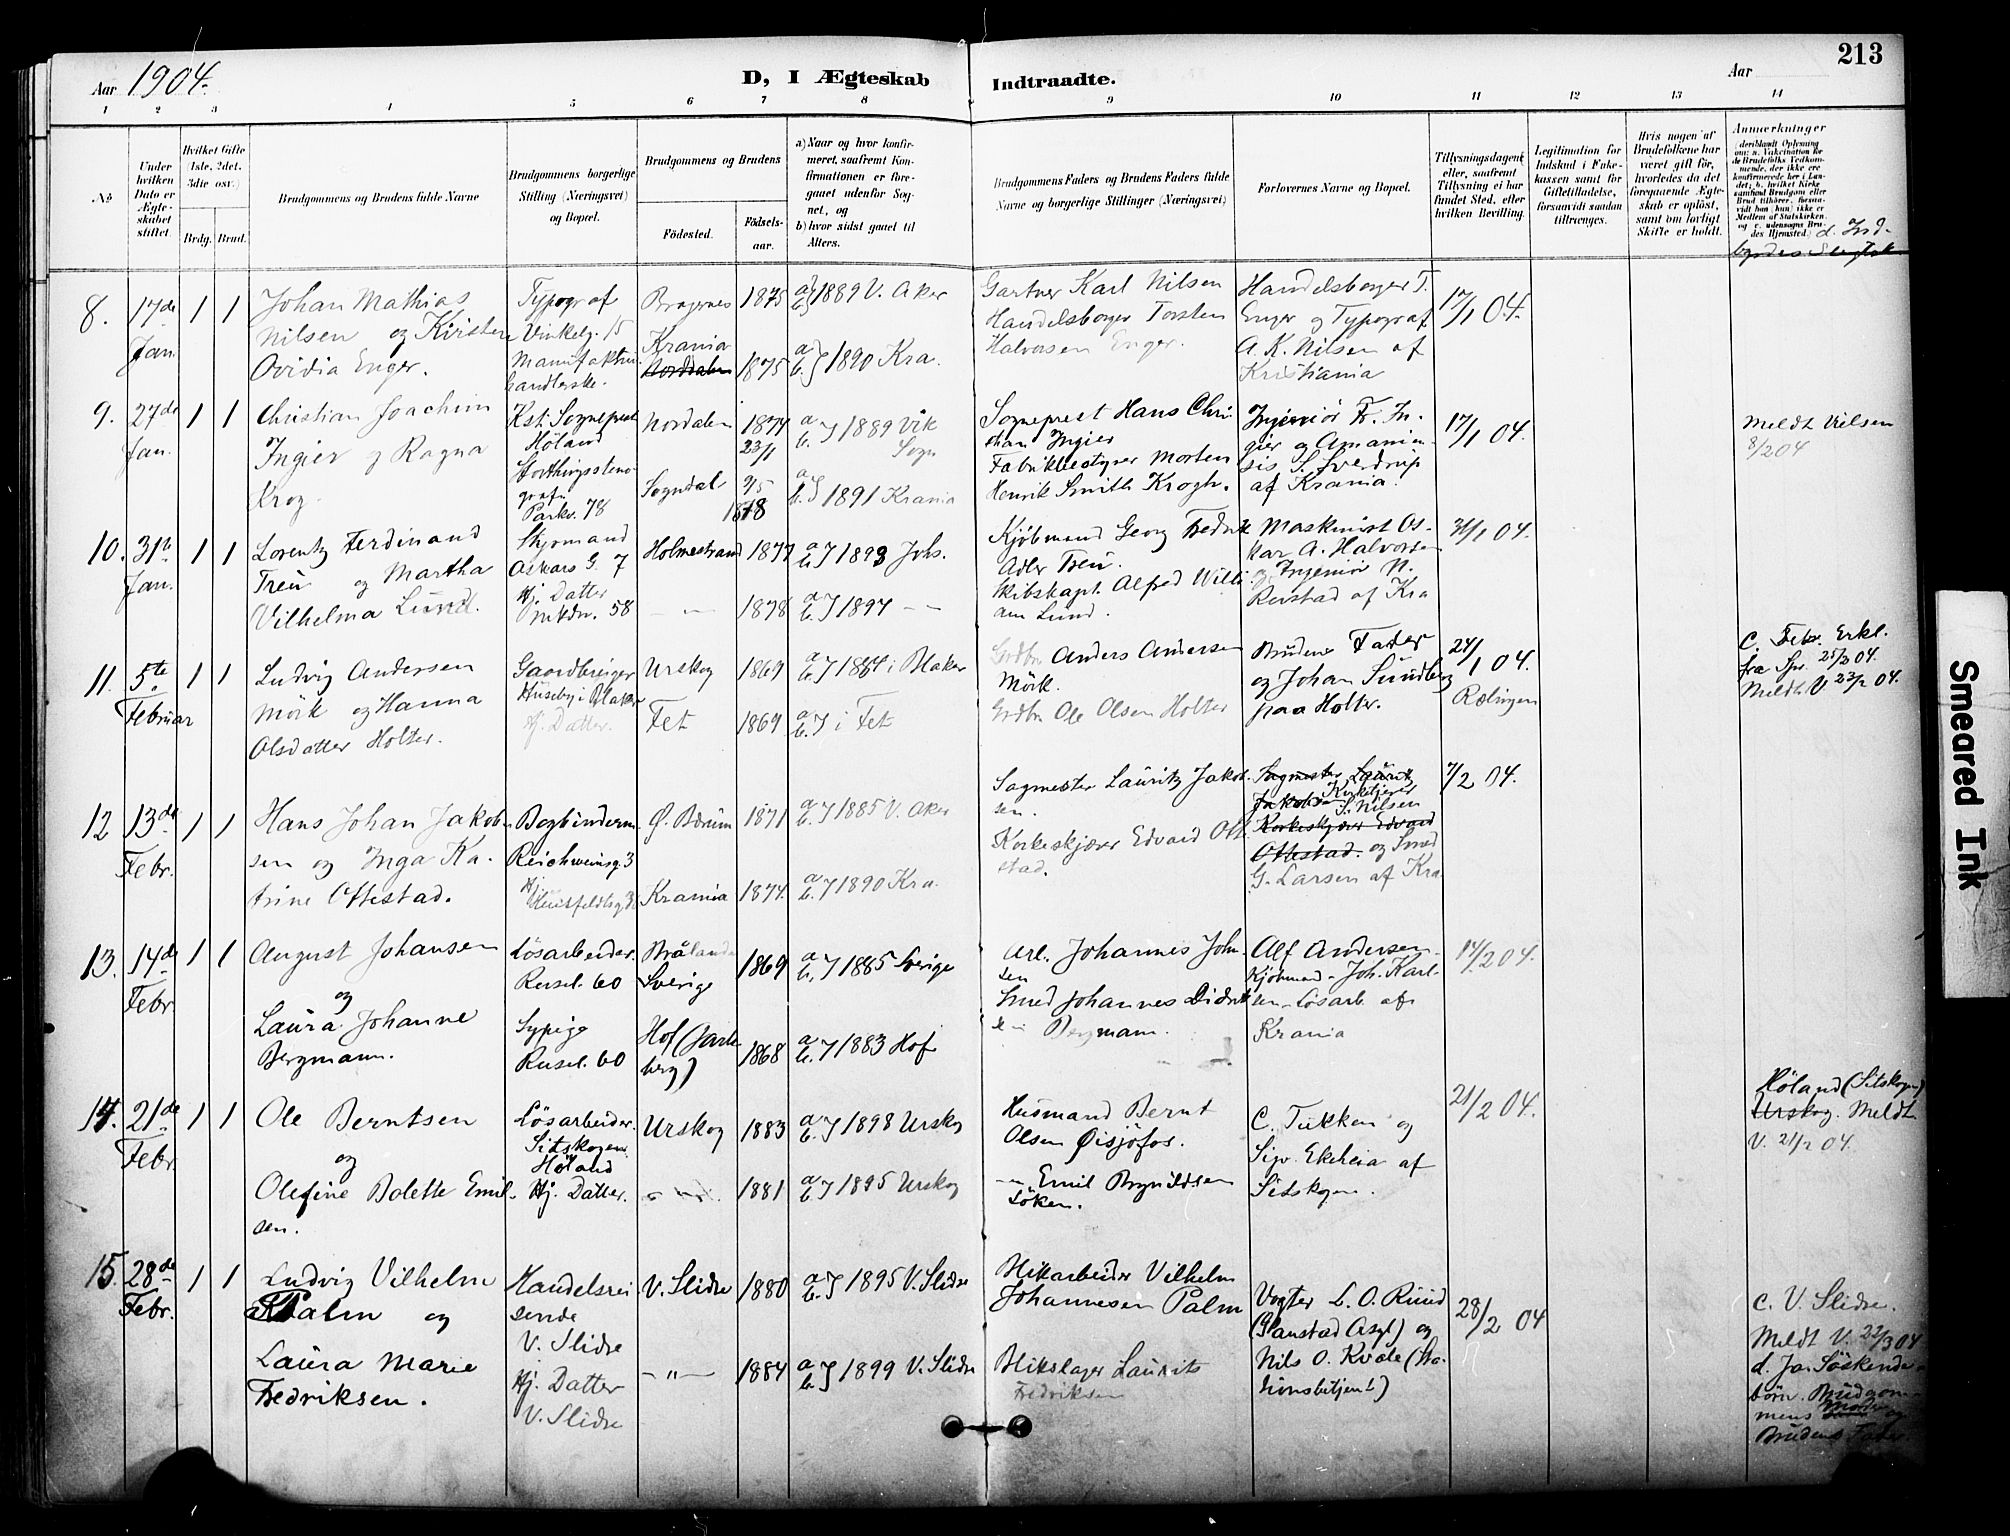 213
Aar 1904.
D, I Ægteskab Indtraadte.
Aar
1 2 3 4 5 6 7 8 9 10 11 12 13 14
No
Under hvilken Dato er Ægteskabet stiftet.
Hvilket Gifte (1ste, 2det, 3die osv.)
Brdg. Brud.
Brudgommens og Brudens fulde Navne
Brudgommens borgerlige Stilling (Næringsvei) og Bopæl.
Brudgommens og Brudens
Fødested.
Fødselsaar.
a) Naar og hvor konfirmeret, saafremt Konfirmationen er foregaaet udenfor Sognet, og
b) hvor sidst gaaet til Alters.
Brudgommens Faders og Brudens Faders fulde Navne og borgerlige Stillinger (Næringsvei)
Forlovernes Navne og Bopæl.
Tillysningsdagene eller, saafremt Tillysning ei har fundet Sted, efter hvilken Bevilling.
Legitimation for Indskud i Enkekassen samt for Giftetilladelse, forsaavidt saadan tiltrænges.
Hvis nogen af Brudefolkene har været gift før, hvorledes da det foregaaende Ægteskab er opløst, samt om lovligt Skifte er holdt.
Anmærkninger
8. 17de Jan. 1 1
Johan Mathias
Nilsen og Kirstine
Ovidia Enger.
Typograf
Vinkelg. 15
Manufaktur
handlerske.
Bragernes 1875
Krania
1875
a b } 1889 V. Aker
a b } 1890 Kra.
Gartner Karl Nilsen
Handelsborger Torsten
Halvorsen Enger.
Handelsborger T.
Enger og Typograf
A. K. Nilsen af
Kristiania
17/1 04.
9. 27de Jan. 1 1
Christian Joachim
Ingier og Ragna
Krog.
Kst. Sogneprest
Höland
Storthingssteno-
graf
Parkv. 78
Nordalen 1874
23/1
Sogndal
1878
a b } 1889 Vik
Sogn
a b } 1891 Krania
Sogneprest Hans Chri-
stian Ingier
Fabrikbestyrer Morten
Henrik Smith Krogh.
Ingeniör Fr. In-
gier og Amanuen-
sis S. Sverdrup
af Krania.
17/1 04.
Meldt
8/2 04
10. 31te Jan. 1 1
Lorentz Ferdinand
Treu og Martha
Vilhelma Lund.
Styrmand
Oskars G. 7
Hj. Datter
58
Holmestrand 1877
— " — 1878
a b } 1893 Johs.
a b } 1894 — —
Kjöbmand Georg Fredrik
Adler Treu.
Skibskapt. Alfred Willi-
am Lund.
Maskinist Os-
kar A. Halvorsen
og Ingeniör N.
af Kra
31/1 04.
11. 5te Februar 1 1
Ludvig Andersen
Mörk og Hanna
Olsdatter Holter.
Gaardbruger
Huseby i Blaker
Hj. Datter.
Urskog 1869
Fet 1869
a b } 1884 i Blaker
a b } i Fet
Grdbr Anders Andersen
Mörk.
Grdbr Ole Olsen Holter
Brudens Fader
og Johan Sundberg
paa Holter.
24/1 04.
Rælingen
C. Febr. Erkl.
fra Spr. 25/2 04.
Meldt V. 23/2 04.
12 13de Febr. 1 1
Hans Johan Jakob-
sen og Inga Ka-
trine Ottestad.
Bogbinderm.
Reichweinsg. 3
Hj.
Ø. Bærum 1871
Krania 1874.
a b } 1885 V. Aker
a b } 1890 Kra.
Sagmester Lauritz Jakob-
sen.
Korkeskjærer Edvard Otte-
stad.
Sagmester Lauritz
Jakobsen Kirketjener
S. Nilsen
Korkeskjærer Edvard
Ottestad. og Smed
G. Larsen af Kra
7/2 04.
13. 14de Febr. 1 1
August Johansen
og
Laura Johanne
Bergmann.
Lösarbeider.
Rusel. 60
Sypige
Rusel. 60
Brålanda
Sverige 1869
Hof (Jarls-
berg) 1868
a b } 1885 Sverige
a b } 1883 Hof
Arb. Johannes John-
sen
Smed Johannes Didrik-
sen Bergmann.
Alf Andersen
Kjöbmand - Joh. Karl-
sen - Lösarb af
Krania
14/2 04.
14. 21de Febr. 1 1
Ole Berntsen
og
Olefine Bolette Emil-
sen.
Lösarbeider.
Sitskogen
Höland
Hj. Datter.
Urskog 1883
1881
a b } 1898 Urskog
a b } 1895 Urskog
Husmand Bernt
Olsen Øisjöfos.
— Emil Brynildsen
Löken.
C. Tukken og
Sigv. Ekeheia af
Sitskogen.
21/2 04.
Höland (Sitskogen)
Urskog. Meldt
V. 21/2 04.
15. 28de Febr. 1 1
Ludvig Vilhelm
Palm og
Laura Marie
Fredriksen.
Handelsrei
sende
V. Slidre
Hj. Datter
V. Slidre
V. Slidre 1880
— " — 1884
a b } 1895 V. Slidre
a b } 1899 V. Slidre
Blikarbeider Vilhelm
Johannesen Palm
Blikslager Laurits
Fredriksen
Vogter L. O. Ruud
(Gaustad Asyl) og
Nils O. Kvale (Sta-
tionsbetjent)
28/2 04
C. V. Slidre.
Meldt V. 22/3 04
d. Ja. Söskende-
börn. Brudgom-
mens Moder og
Brudens Fader
Smeared Ink